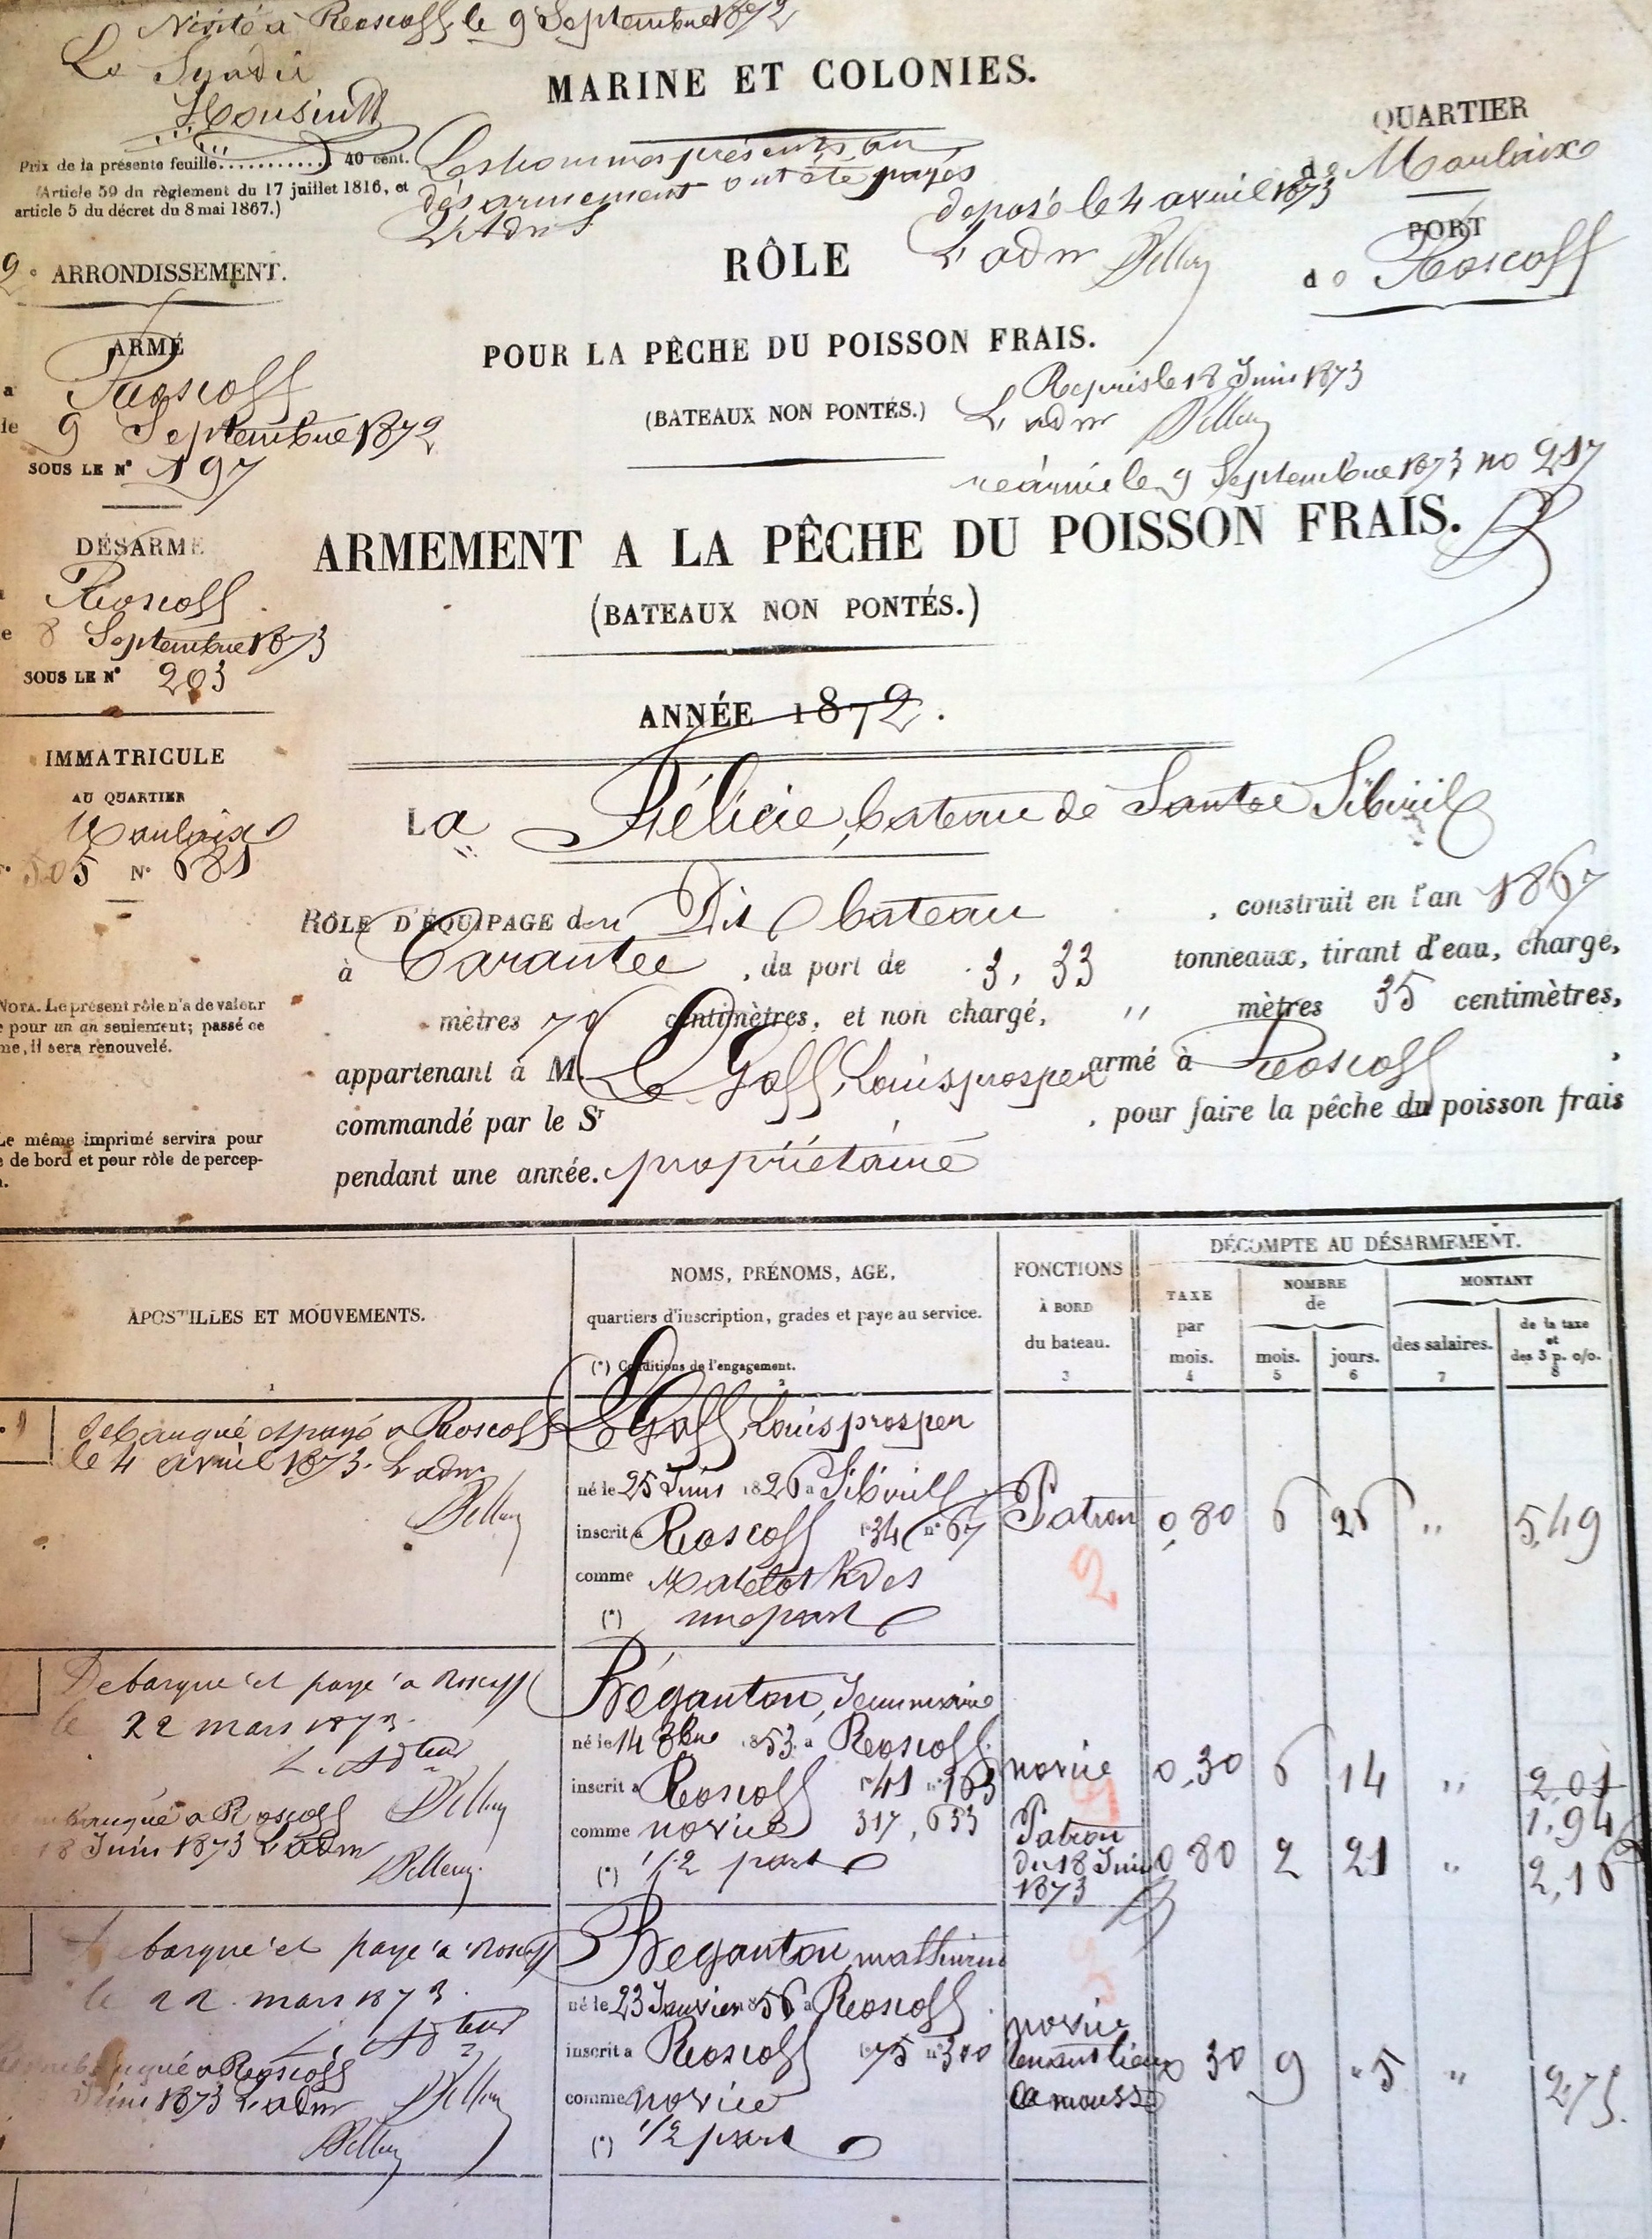 Visité à Roscoff le 9 Septembre 1872
Le Syndic
MARINE ET COLONIES.
QUARTIER
de Morlaix
Prix de la présente feuille............ 40 cent.
(Article 59 du règlement du 17 juillet 1816, et
article 5 du décret du 8 mai 1867.)
Les hommes présents au
désarmement ont été payés
L'Adm
déposé le 4 avril 1873
L'adm
PORT
de Roscoff
2e ARRONDISSEMENT.
RÔLE
POUR LA PÊCHE DU POISSON FRAIS.
(BATEAUX NON PONTÉS.)
Repris le 18 Juin 1873
L'adm
réarmé le 9 Septembre 1873 no 217
ARMÉ
a Roscoff
le 9 Septembre 1872
SOUS LE N° 197
DÉSARMÉ
Roscoff
le 8 Septembre 1873
SOUS LE N° 203
ARMEMENT A LA PÊCHE DU POISSON FRAIS.
(BATEAUX NON PONTÉS.)
ANNÉE 1872.
IMMATRICULE
AU QUARTIER
Morlaix
505 N° 681
La Félicie, bateau de Santec Sibiril
RÔLE D'ÉQUIPAGE du Dit bateau , construit en l'an 1867
à Carantec , du port de 3,33 tonneaux, tirant d'eau, chargé,
mètres 70 centimètres, et non chargé, " mètres 35 centimètres,
appartenant à M. Le Goff, Louis prosper armé à Roscoff ,
commandé par le Sr , pour faire la pêche du poisson frais
pendant une année. propriétaire
NOTA. Le présent rôle n'a de valeur
pour un an seulement; passé ce
me, il sera renouvelé.
Le même imprimé servira pour
e de bord et pour rôle de percep-
APOSTILLES ET MOUVEMENTS.
1
NOMS, PRÉNOMS, AGE,
quartiers d'inscription, grades et paye au service.
(*) Conditions de l'engagement.
2
FONCTIONS
À BORD
du bateau.
3
DÉCOMPTE AU DÉSARMEMENT.
TAXE
par
mois.
4
NOMBRE
de
mois.
5
jours.
6
MONTANT
des salaires.
7
de la taxe
et
des 3 p. o/o.
8
débarqué et payé a Roscoff
le 4 avril 1873. L'adm
Le Goff, Louis prosper
né le 25 Juin 1826 a Sibirill
inscrit a Roscoff f° 34 n° 67
comme Matelot
(*) une part
Patron 0,80 6 26 " 5,49
2
Debarqué et payé a Roscoff
le 22 mars 1873.
L. Adteur
embarqué a Roscoff
18 Juin 1873 L'adm
Béganton, Jean marie
né le 14 8bre 1853 a Roscoff
inscrit a Roscoff f° 41 n° 163
comme novice 317, 633
(*) 1/2 part
novice 0,30 6 14 " 2,01
1,94
Patron
du 18 Juin
1873
0 80 2 21 " 2,16
Debarqué et payé a Roscoff
le 22 mars 1873.
L. Adteur
Rembarqué a Roscoff
Juin 1873 L'adm
Béganton, mathurin
né le 23 Janvier 1856 a Roscoff
inscrit a Roscoff f° 75 n° 300
comme novice
(*) 1/2 part
novice
tenant lieu
de mousse
0 30 9 " 5 " 2,75.